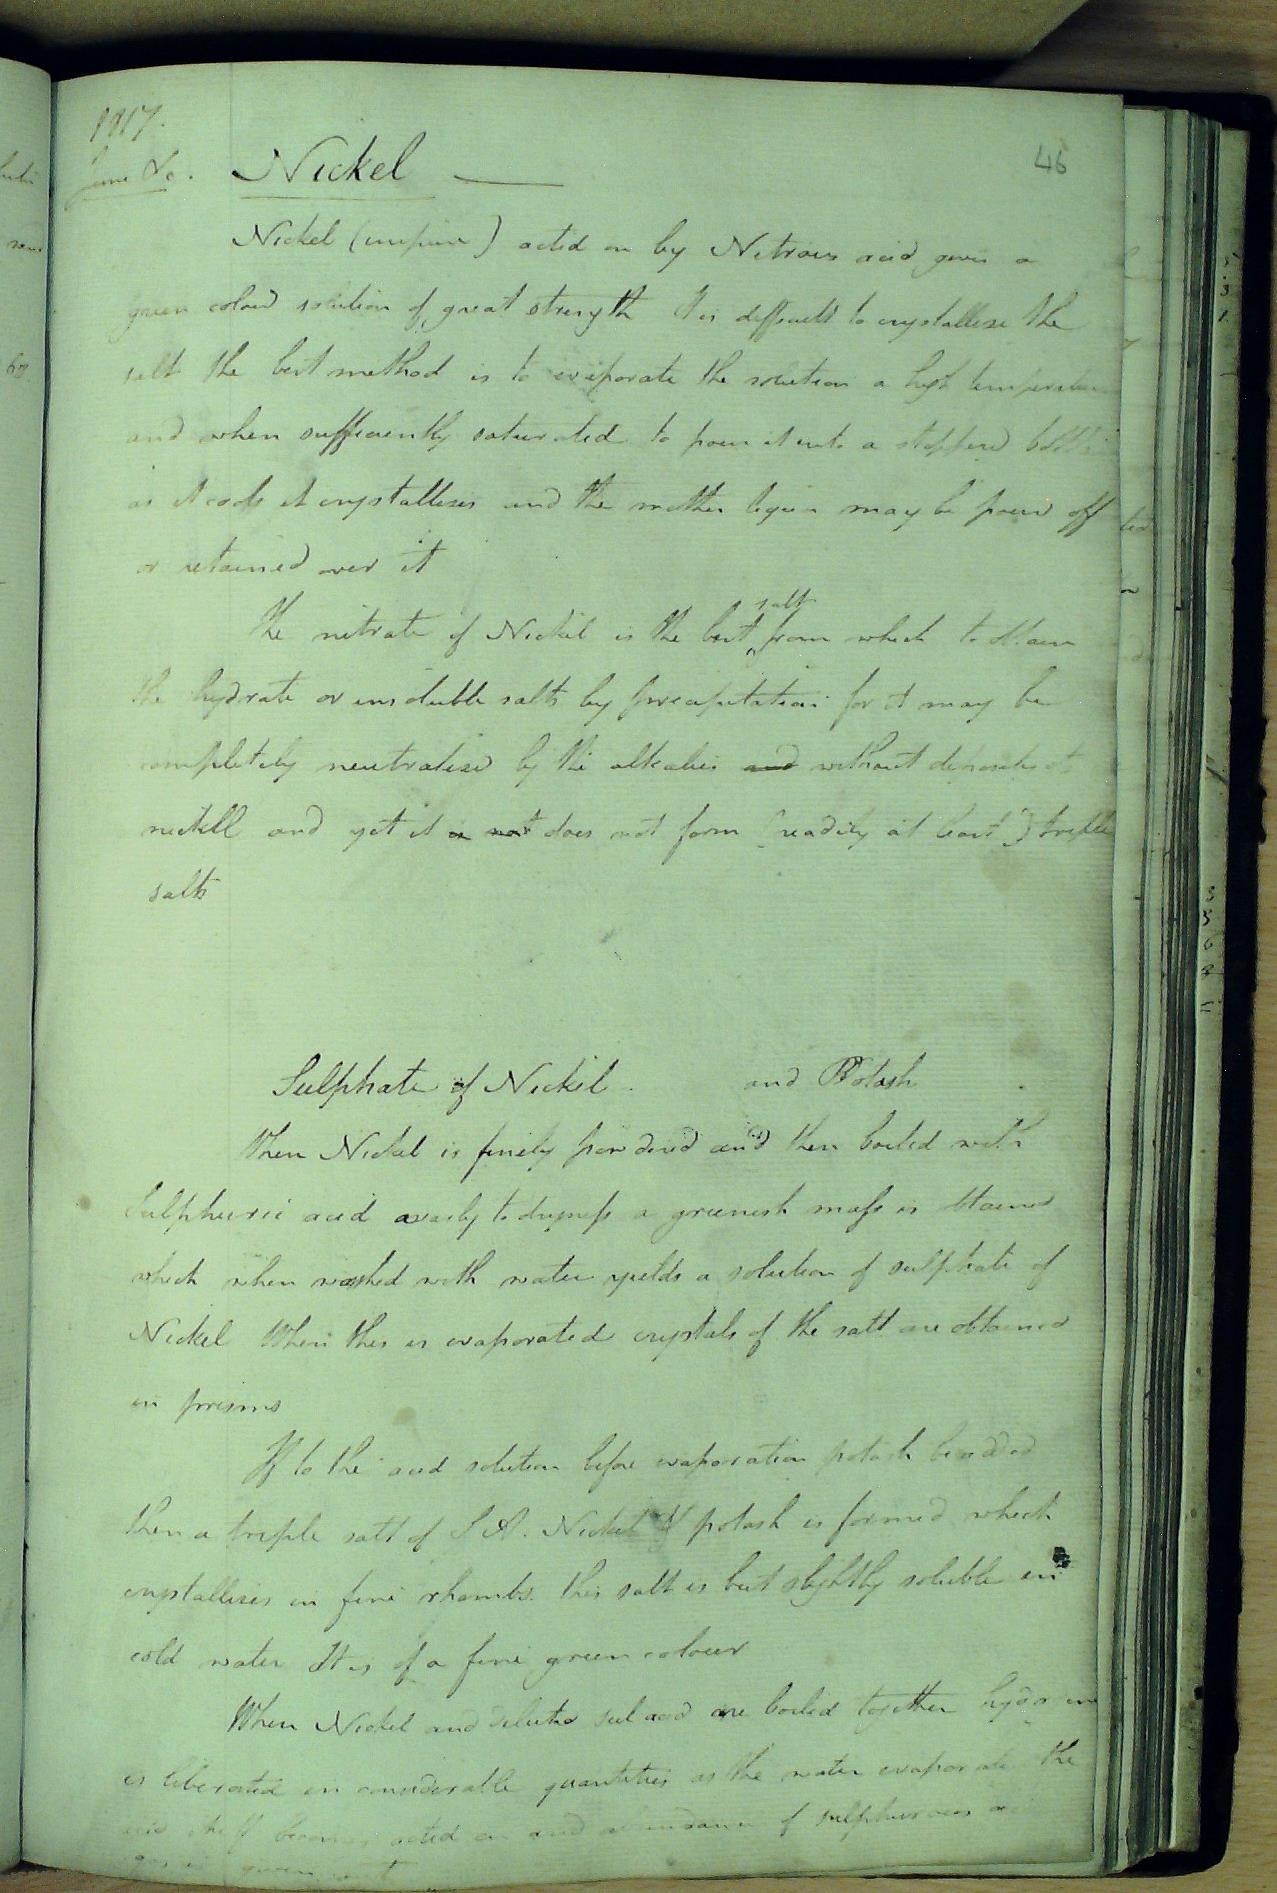 1817.
June &c.
Nickel
46
Nickel (impure) acted on by Nitrous acid gives a
green colord solution of great strength It is difficult to crystallize the
salt the best method is to evaporate the solution a high temperature
and when sufficiently saturated to pour it into a stopperd bottle
as it cools it crystallises and the mother liquor may be pourd off
or retained over it
The nitrate of Nickel is the best salt from which to obtain
the hydrate or insoluble salts by precipitation for it may be
completely neutralised by the alkalies and without
nickell and yet it is not does not form (readily at least) triple
salts
Sulphate of Nickel. and Potash
When Nickel is finely powderd and then boiled with
Sulphuric acid to dryness a greenish mass is obtained
which when washed with water yields a solution of sulphate of
Nickel When this is evaporated crystals of the salt are obtained
in prisms
If to the acid solution before evaporation potash be added
then a triple salt of S A. Nickel & potash is formed which
crystallises in fine rhombs. this salt is but slightly soluble in
cold water It is of a fine green colour
When Nickel and diluted sul acid are boiled together hydrogen
is liberated in considerable quantities as the water evaporates the
acid itself becomes acted on and abundance of sulphureous acid
gas is given out